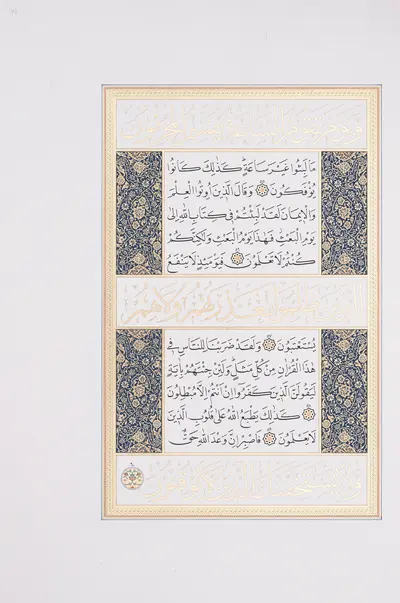 وَيَوْمَ تَقُومُ السَّاعَةُ يُقْسِمُ الْمُجْرِمُونَ
مَا لَبِثُوا غَيْرَ سَاعَةٍ كَذَٰلِكَ كَانُوا
يُؤْفَكُونَ وَقَالَ الَّذِينَ أُوتُوا الْعِلْمَ
وَالْإِيمَانَ لَقَدْ لَبِثْتُمْ فِي كِتَابِ اللَّهِ إِلَىٰ
يَوْمِ الْبَعْثِ فَهَٰذَا يَوْمُ الْبَعْثِ وَلَٰكِنَّكُمْ
كُنْتُمْ لَا تَعْلَمُونَ فَيَوْمَئِذٍ لَا يَنْفَعُ
الَّذِينَ ظَلَمُوا مَعْذِرَتُهُمْ وَلَا هُمْ
يُسْتَعْتَبُونَ وَلَقَدْ ضَرَبْنَا لِلنَّاسِ فِي
هَٰذَا الْقُرْآنِ مِنْ كُلِّ مَثَلٍ وَلَئِنْ جِئْتَهُمْ بِآيَةٍ
لَيَقُولَنَّ الَّذِينَ كَفَرُوا إِنْ أَنْتُمْ إِلَّا مُبْطِلُونَ
كَذَٰلِكَ يَطْبَعُ اللَّهُ عَلَىٰ قُلُوبِ الَّذِينَ
لَا يَعْلَمُونَ فَاصْبِرْ إِنَّ وَعْدَ اللَّهِ حَقٌّ
وَلَا يَسْتَخِفَّنَّكَ الَّذِينَ لَا يُوقِنُونَ